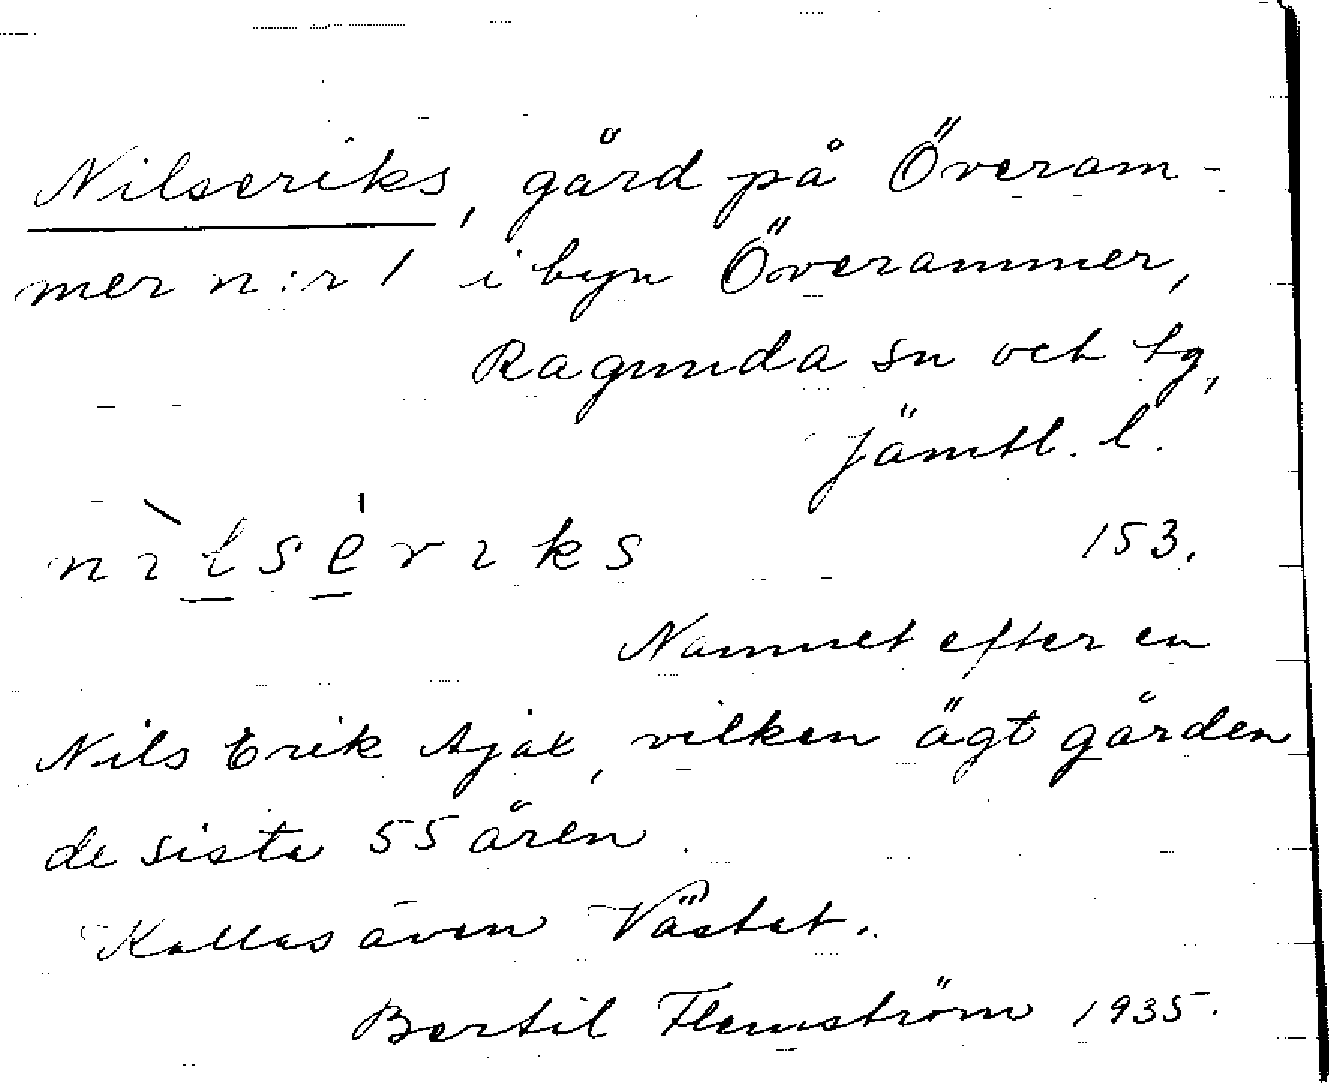 Nilseriks, gård på Överam-
mer n:r 1 i byn Överammer,
Ragunda sn och tg,
Jämtl. l.
nìlsériks 153.
Namnet efter en
Nils Erik Ajax, vilken ägt gården
de sista 55 åren.
Kallas även Västat.
Bertil Flemström 1935.